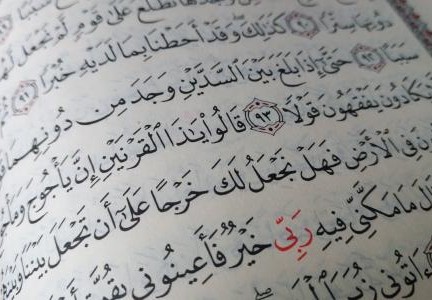 تطلع على قوم لم نجعل لهم
دونها سترا ٩٠ كذلك وقد أحطنا بما لديه خبرا ٩١
سببا ٩٢ حتى إذا بلغ بين السدين وجد من دونهما
يكادون يفقهون قولا ٩٣ قالوا يذا القرنين إن يأجوج ومأجوج
في الأرض فهل نجعل لك خرجا على أن تجعل بيننا وبينهم
ما مكني فيه ربي خير فأعينوني بقوة
ءاتوني زبر